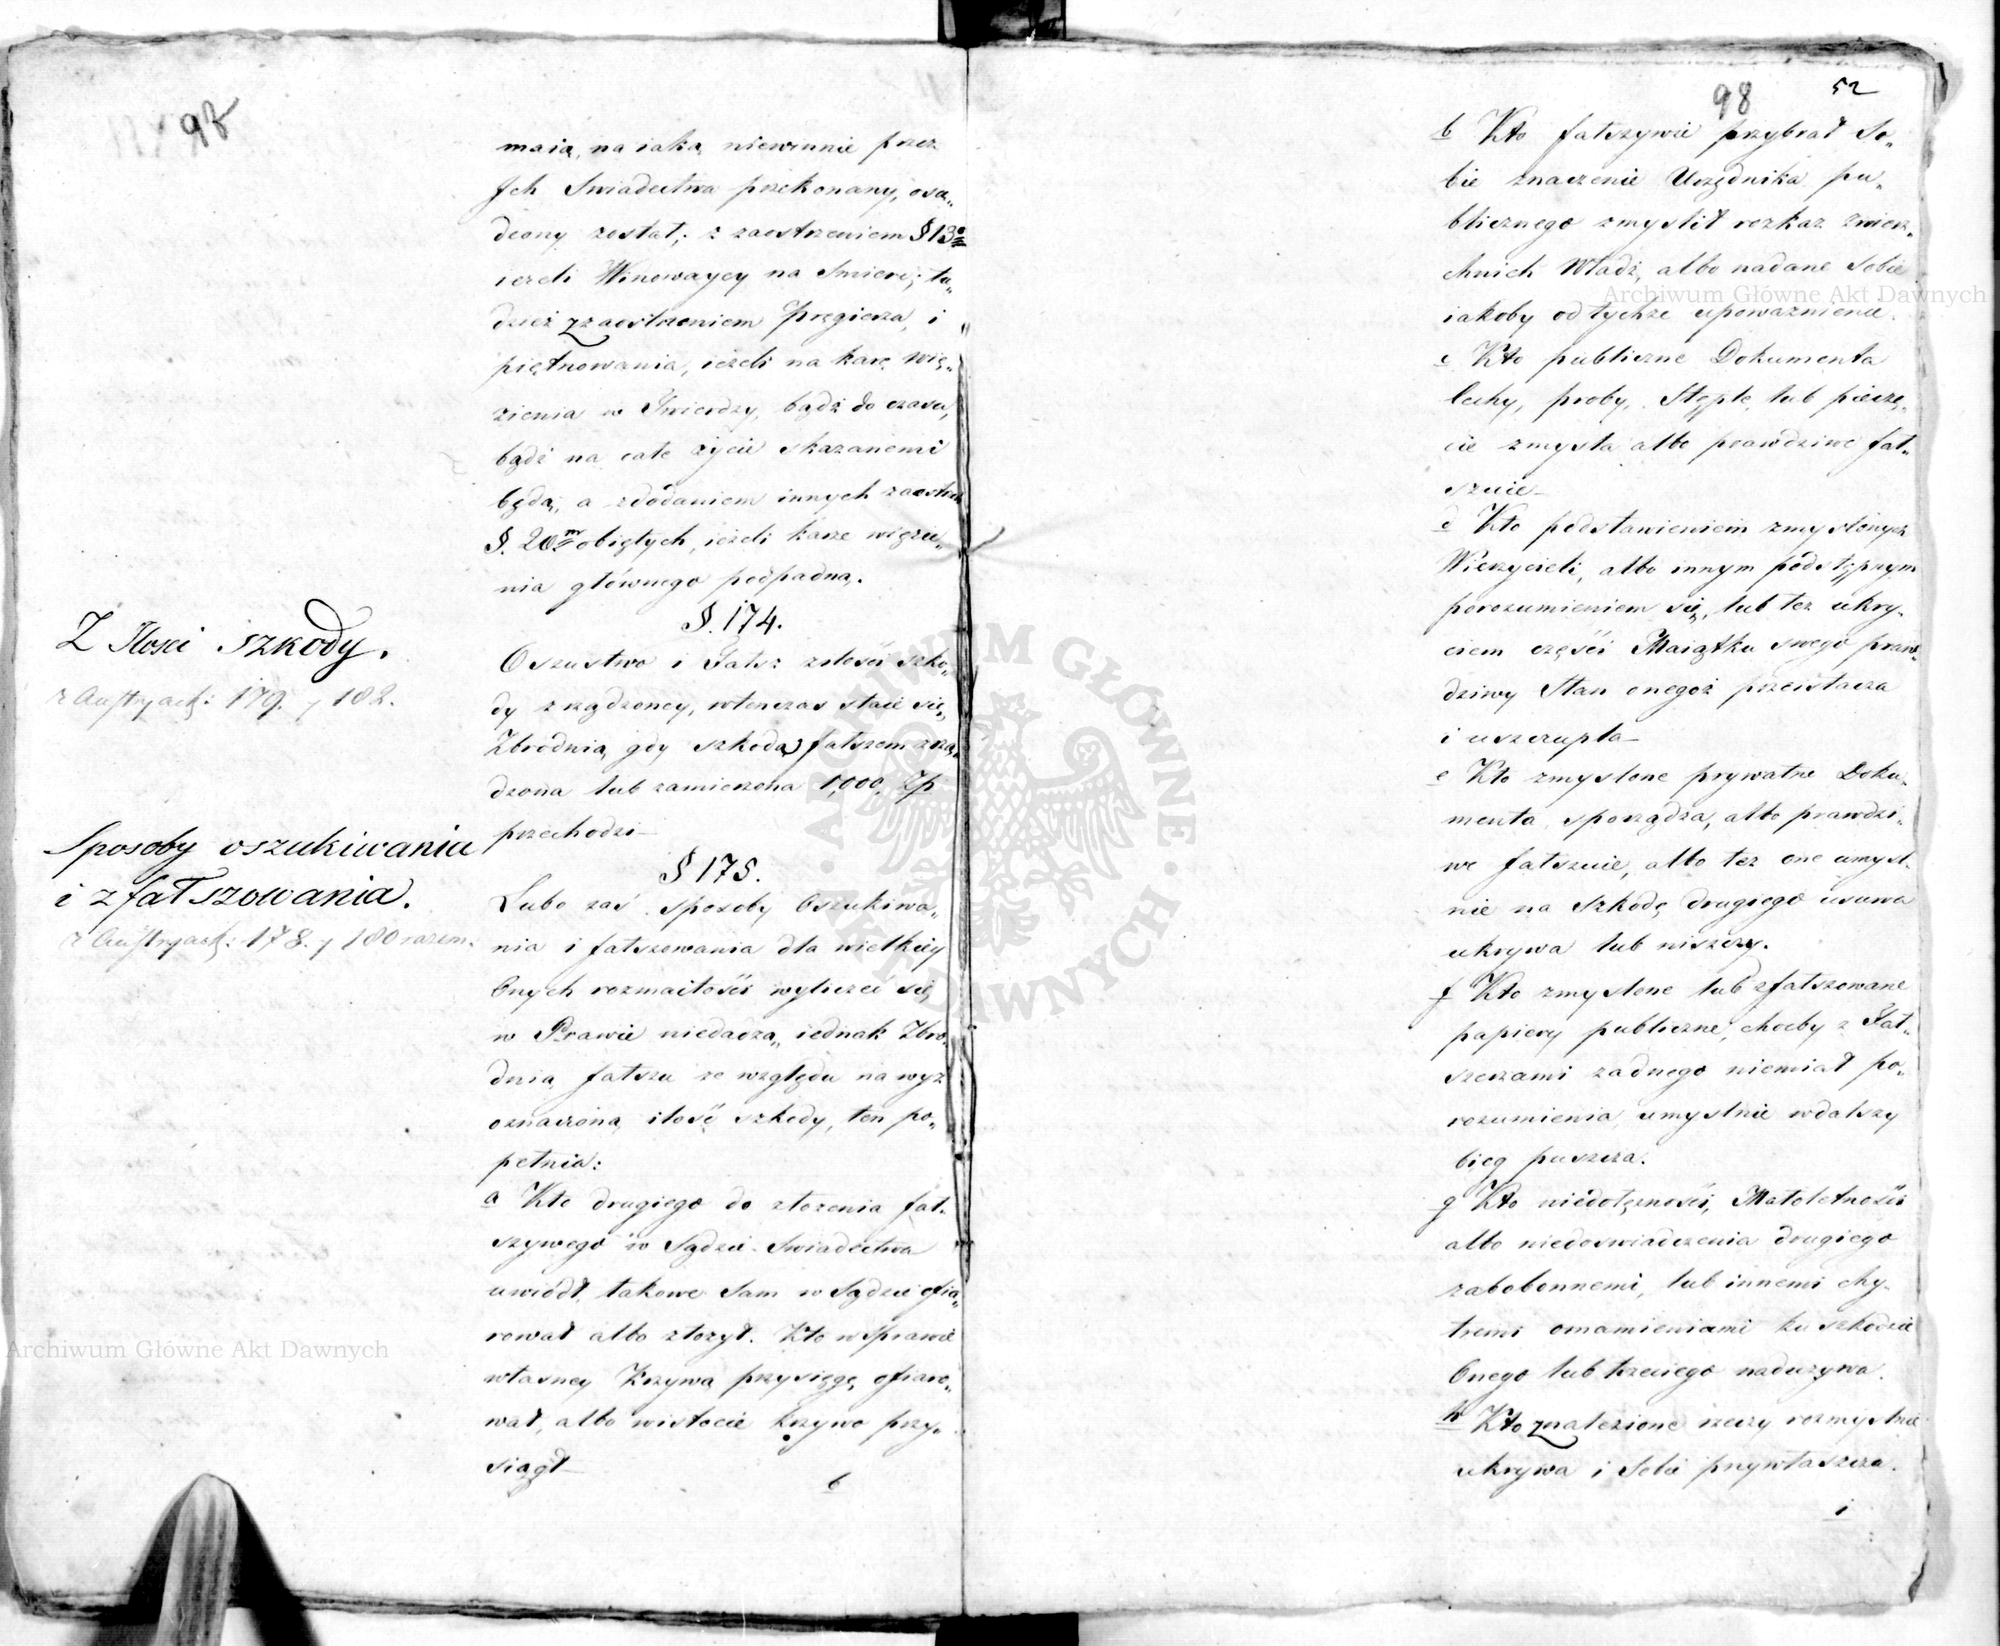 98
maią, na iaką niewinnie przez
Ich Swiadectwa przekonany, osą„
dzony został; z zaostrzeniem § 13º
iezeli Winowaycy na Smierć; tu„
dzież z zaostrzeniem Pręgierza, i
piętnowania, ieżeli na karę Wię„
zienia w Twierdzy, bądź do czasu,
bądź na całe życie skazanemi
będą, a z dodaniem innych zaostrzeń
§. 20m obiętych, ieżeli karze więzie„
nia głównego podpadną.
§. 174.
Z Ilości szkody.
z Austryack: 179. y 182.
Oszustwo i Fałsz z ilości szko„
dy zrządzoney, wtenczas staie się
Zbrodnią, gdy szkoda fałszem zrzą„
dzona lub zamierzona 1,000, Zp
przechodzi
§ 175.
Sposoby oszukiwania
i zfałszowania.
z Austryack: 178. y 180 razem.
Lubo zaś sposoby Oszukiwa„
nia i fałszowania dla wielkiey
Onych rozmaitości wyliczeć się
w Prawie niedadzą, iednak Zbro„
dnią fałszu ze względu na wyż
oznaczoną ilość szkody, ten po„
pełnia:
a Kto drugiego do złożenia fał„
szywego w Sądzie Swiadectwa
uwiódł, takowe Sam w Sądzie ofia„
rował albo złożył. Kto w Sprawie
własney Krzywą przysięgę ofiaro„
wał, albo wistocie krzywo przy„
siągł
b
98 52
b Kto fałszywie przybrał So„
bie znaczenie Urzędnika pu„
blicznego zmyślił rozkaz zwierz„
chnich Władz, albo nadane Sobie
iakoby od tychże upoważnienie.
c Kto publiczne Dokumenta
Cechy, proby, Stęple, lub pieczę„
cie zmyśla albo prawdziwe fał„
szuie
d Kto podstawieniem zmyślonych
Wierzycieli, albo innym podstępnym
porozumieniem się, lub też ukry„
ciem części Maiątku swego praw„
dziwy Stan onegoż przeistacza
i uszczupla
e Kto zmyślone prywatne Doku„
menta sporządza, albo prawdzi„
we fałszuie, albo też one umyśl„
nie na szkodę drugiego usuwa
ukrywa lub niszczy.
f Kto zmyślone lub zfałszowane
papiery publiczne, choćby z Fał„
szerzami żadnego niemiał po„
rozumienia, umyślnie wdalszy
bieg puszcza.
g Kto niedołężności, Małoletności
albo niedoswiadczenia drugiego
zabobonnemi, lub innemi chy„
tremi omamieniami ku szkodzie
Onego lub trzeciego nadużywa.
h Kto znalezione rzeczy rozmyślnie
ukrywa i Sobie przywłaszcza.
i
Archiwum Główne Akt Dawnych
Archiwum Główne Akt Dawnych
ARCHIWUM GŁÓWNE AKT DAWNYCH